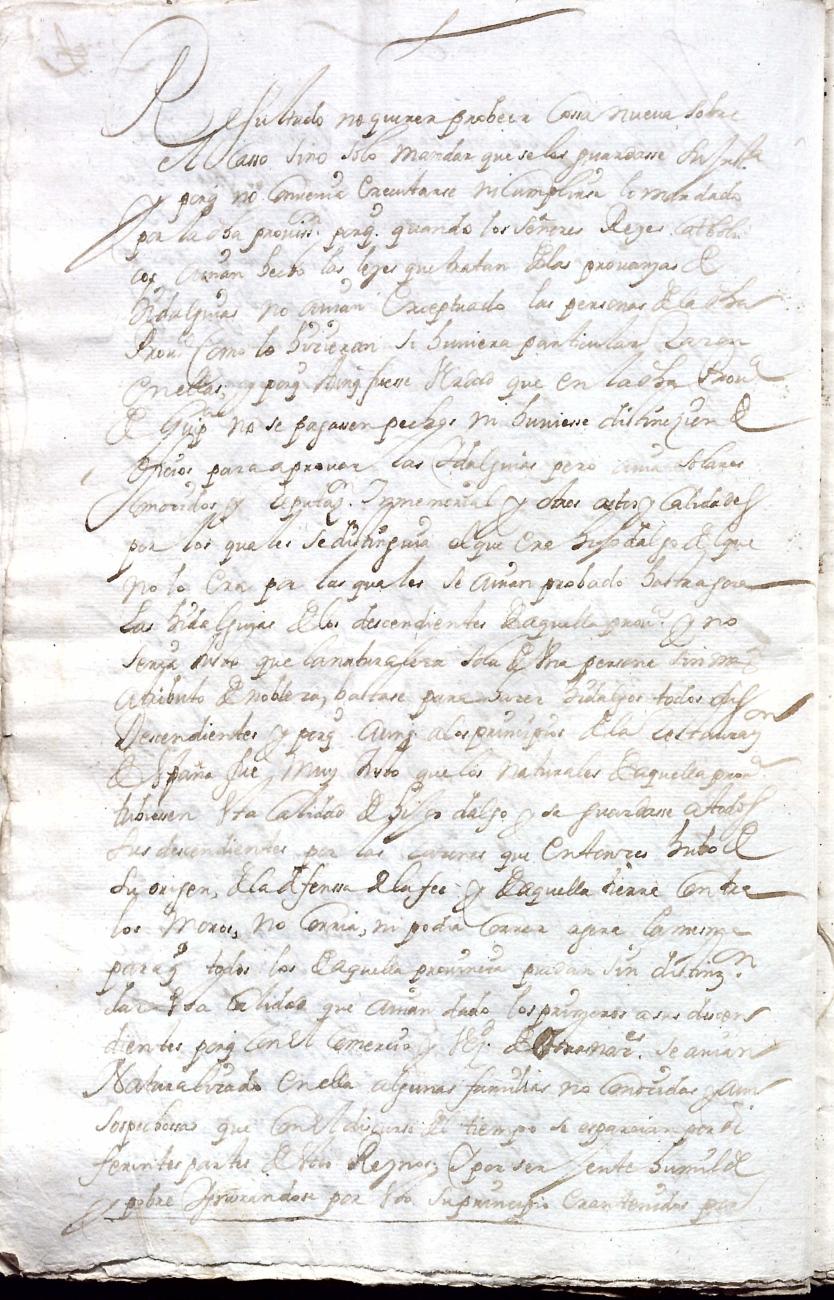 Resultado no querer probeer Cossa nueva sobre
el Casso sino solo mandar que se les guardasse su Justª
y porq̃ no Convenia executarse ni cumplirse lo mandado
por la dha provissⁿ. porq̃. quando los señores Reyes Catholi
cos avian hecho las leyes que tratan de las provanzas de
hidalguias no avian exceptuado las personas de la dha
Provª Como lo hicieran si huviera particular Razon
en ellas, y porq̃ aunq̃ fuesse Verdad que en la dha Provª
de Guipᶜᵒᵃ no se pagassen pechos ni huviesse distinczion de
oficios para aprovar las Idalguias pero avia solares
Conocidos y reputazⁿ. Inmemorial y otros actos y calidades
por los quales se distinguia el que era hijodalgo del que
no lo era por las quales se avian probado hasta agora
Las hidalguias de los descendientes de aquella provª. y no
seria justo que la naturaleza sola de Una persona sin mas
atributo de nobleza, bastase para hacer hidalgos todos sus
Descendientes y porq̃ aunq̃ a los principios de la restaurazⁿ
de España fue muy Justo que los Naturales de aquella provª
tubiesen esta Calidad de hijos dalgo y se guardasse a todos
sus descendientes por las razones que entonces hubo de
su origen, de la defenssa de la fee y de aquella tierra Contra
los Moros, no Corria, ni podia Correr agora la mesma
para q̃ todos los de aquella provincia puedan sin distinzⁿ.
dar essa Calidad que avian dado los primeros a sus descen
dientes porq̃ con el Comercio y de otras partes. se avian
Naturalizado en ella algunas familias no Conocidas y aun
sospechossas que Con el discurso del tiempo se esparcian por di
ferentes partes de estos Reynos, y por ser Jente humilde
y pobre Ignorandose por esto su principio eran tenidos por